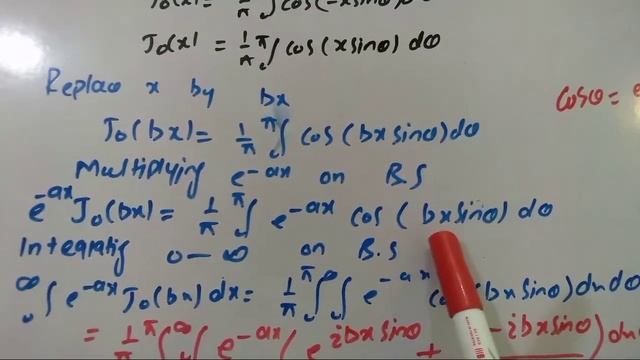 J₀(x) = 1/π ∫ cos(-x sinθ) dθ
J₀(x) = 1/π ∫₀^π cos(x sinθ) dθ
Replace x by bx
cosθ = e
J₀(bx) = 1/π ∫₀^π cos(bx sinθ) dθ
Multiplying e^-ax on B.S
e^-ax J₀(bx) = 1/π ∫₀^π e^-ax cos(bx sinθ) dθ
Integratig 0-∞ on B.S
∫₀^∞ e^-ax J₀(bx) dx = 1/π ∫₀^π ∫₀^∞ e^-ax cos(bx sinθ) dx dθ
= 1/π ∫^π ∫^∞ e^-ax (e^ibx sinθ + e^-ibx sinθ) dx